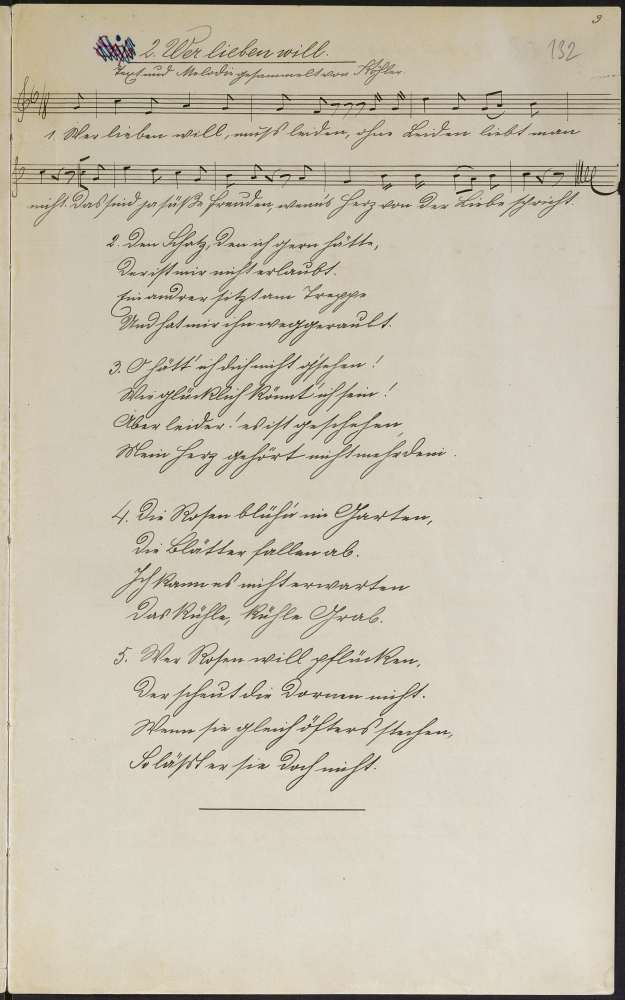 3
132
2. Wer lieben will.
Text und Melodie gesammelt von Köhler
1. Wer lieben will, muß leiden, ohne Leiden liebt man
nicht. Das sind ja süße Freuden, wenn's Herz von der Liebe spricht.
2. Den Schatz, den ich gern hätte,
Der ist mir nicht erlaubt.
Ein andrer sitzt am Treppe
Und hat mir ihn weggeraubt.
3. O hätt' ich dich nicht g'sehen!
Wie glücklich könnt' ich sein!
Aber leider! es ist geschehen,
Mein Herz gehört nicht mehr dein.
4. Die Rosen blüh'n im Garten,
Die Blätter fallen ab.
Ich kann es nicht erwarten
Das kühle, kühle Grab.
5. Wer Rosen will pflücken,
Der scheut die Dornen nicht.
Wenn sie gleich öfters stechen,
So läßt er sie doch nicht.